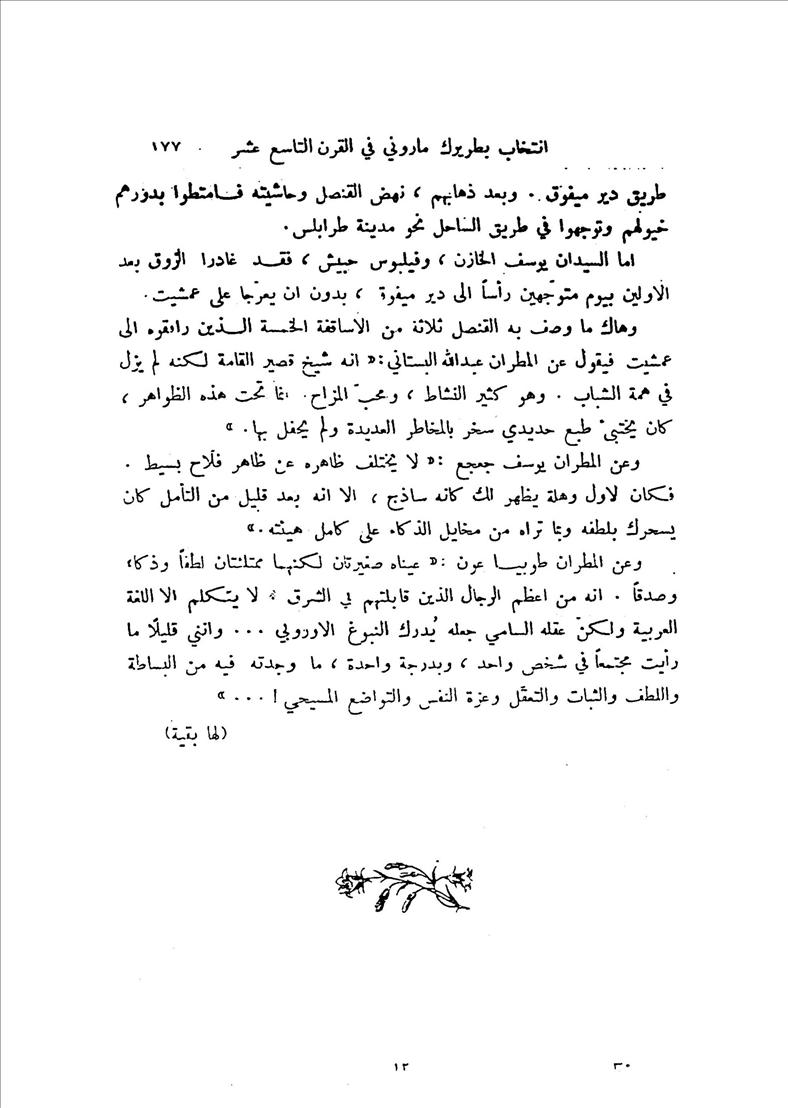 انتخاب بطريرك ماروني في القرن التاسع عشر ١٧٧
طريق دير ميفوق. وبعد ذهابهم، نهض القنصل وحاشيته فامتطوا بدورهم
خيولهم وتوجهوا في طريق الساحل نحو مدينة طرابلس.
اما السيدان يوسف الخازن، وفيلبوس حبيش، فقد غادرا الزوق بعد
الاولين بيوم متوجّهين رأساً الى دير ميفوق، بدون ان يعرّجا على عمشيت.
وهاك ما وصف به القنصل ثلاثة من الأساقفة الخمسة الذين رافقوه الى
عمشيت فيقول عن المطران عبدالله البستاني: «انه شيخ قصير القامة لكنه لم يزل
في همة الشباب. وهو كثير النشاط، ومحبّ المزاح. انما تحت هذه الظواهر،
كان يختبئ طبع حديدي سخر بالمخاطر العديدة ولم يحفل بها.»
وعن المطران يوسف جعجع: «لا يختلف ظاهره عن ظاهر فلّاح بسيط.
فكان لاول وهلة يظهر لك كانه ساذج، الا انه بعد قليل من التأمل كان
يسحرك بلطفه وبما تراه من مخايل الذكاء على كامل هيئته.»
وعن المطران طوبيا عون: «عيناه صغيرتان لكنهما ممتلئتان لطفاً وذكاء
وصدقاً. انه من اعظم الرجال الذين قابلتهم في الشرق؛ لا يتكلم الا اللغة
العربية ولكنّ عقله السامي جعله يُدرك النبوغ الاوروبي ... وانني قليلًا ما
رأيت مجتمعاً في شخص واحد، وبدرجة واحدة، ما وجدته فيه من البساطة
واللطف والثبات والتعقّل وعزة النفس والتواضع المسيحي! ...»
(لها بقية)
٣٠ ١٢